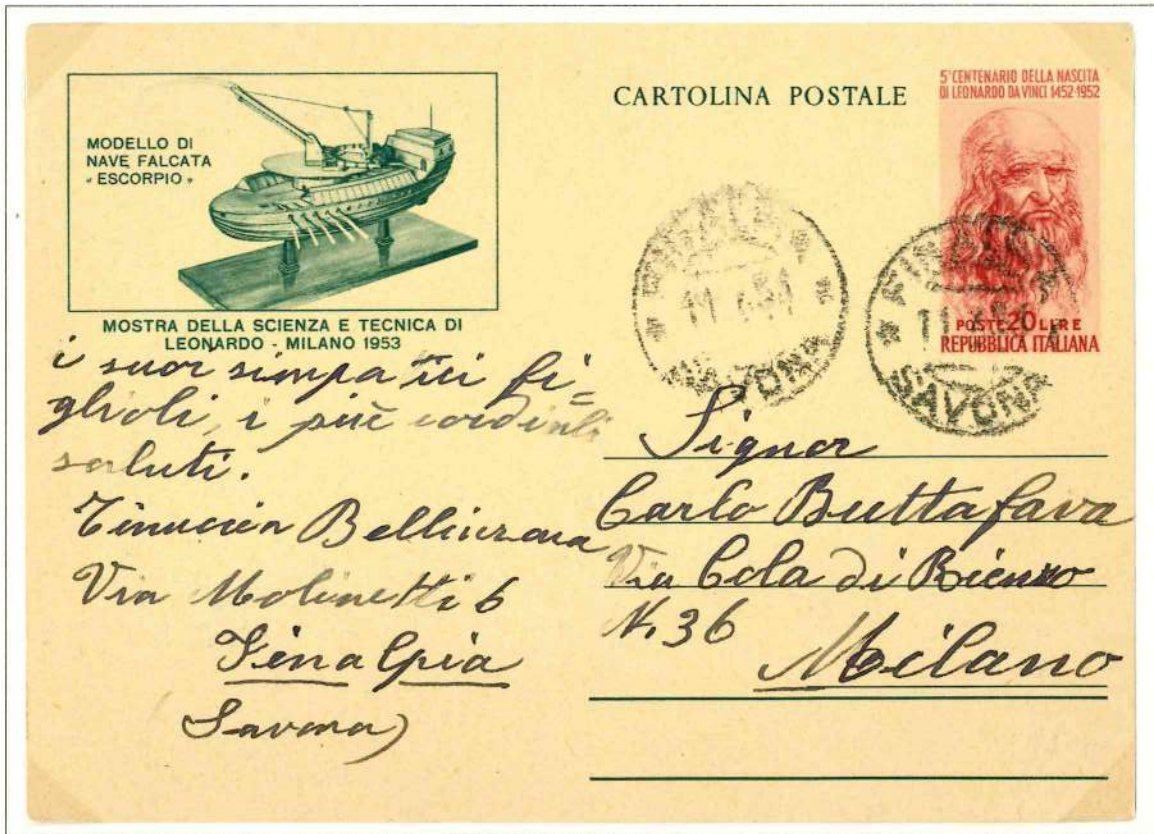 MODELLO DI
NAVE FALCATA
« ESCORPIO »
MOSTRA DELLA SCIENZA E TECNICA DI
LEONARDO - MILANO 1953
CARTOLINA POSTALE
5° CENTENARIO DELLA NASCITA
DI LEONARDO DA VINCI 1452-1952
POSTE 20 LIRE
REPUBBLICA ITALIANA
SAVONA
SAVONA
i suoi simpatici fi=
glioli, i più cordiali
saluti.
Via Molinetti 6
Finalpia
Savona)
Signor
Carlo Buttafava
Via Cola di Rienzo
N. 36
Milano